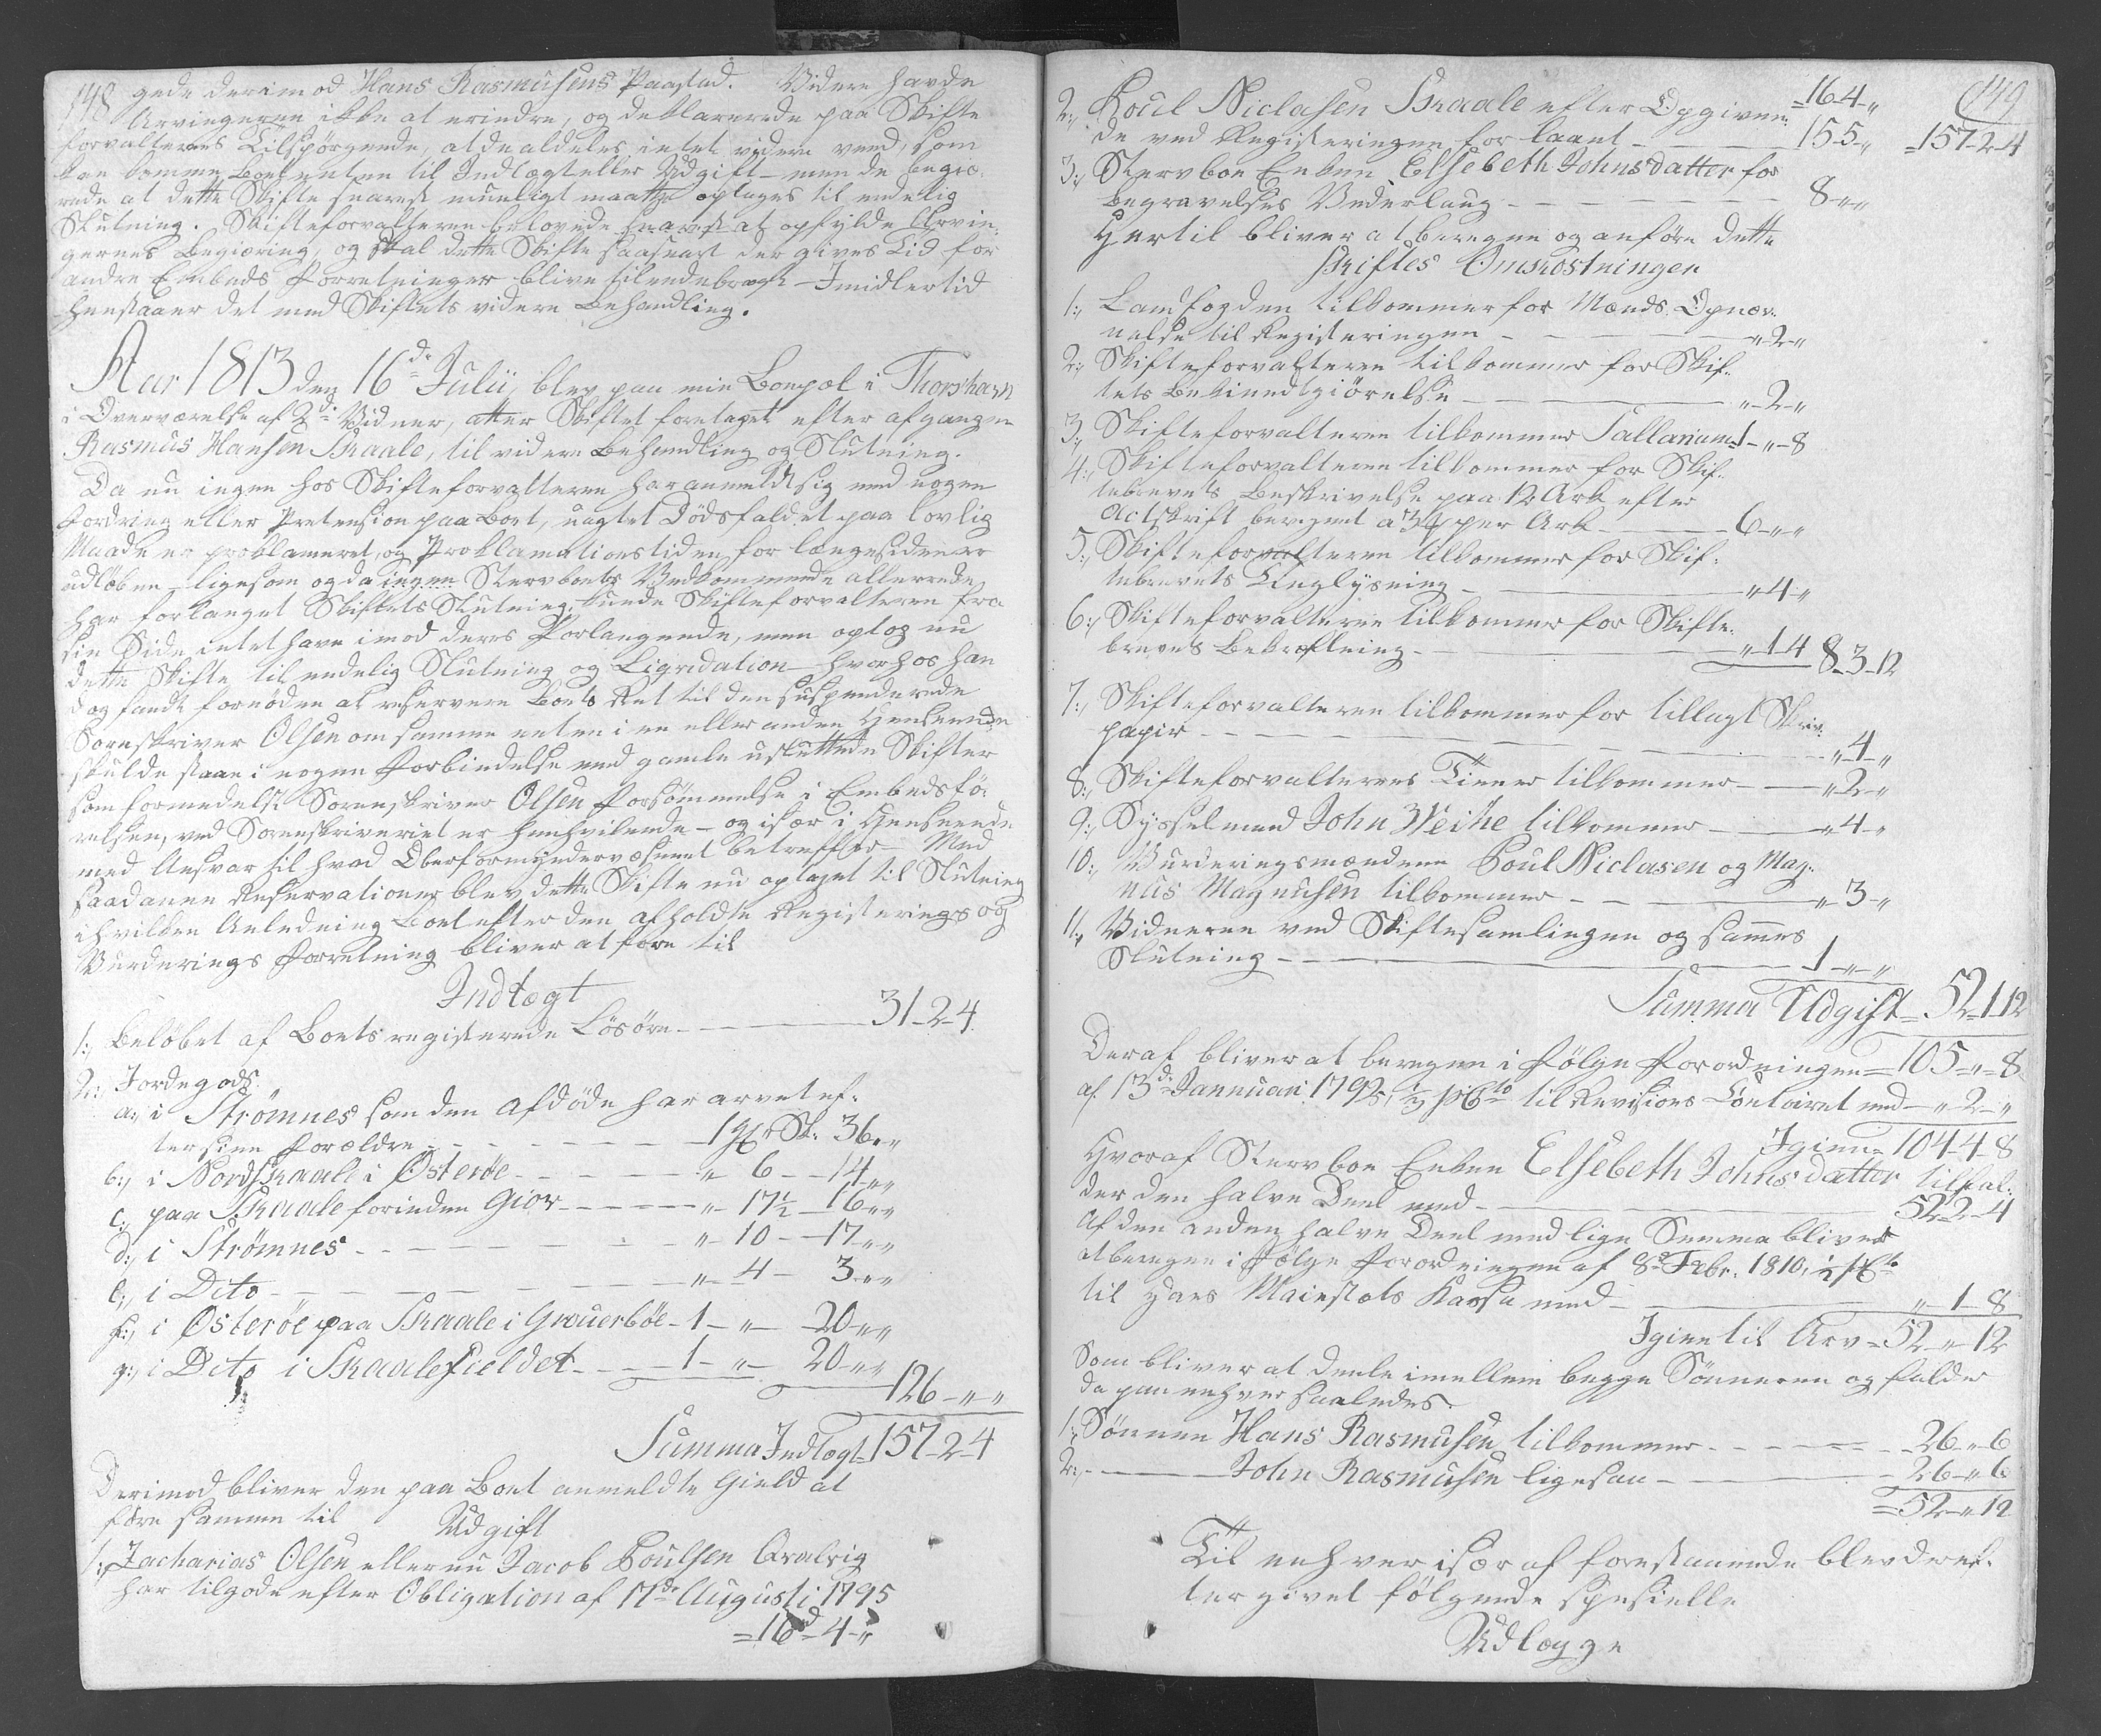 148 gede derimod Hans Rasmusens Paastad. Videre havde
Arvingerne ikke at erindre, og deklarerede paa Skifte
forvalterens Tilspørgende, at de aldeles intet videre veed, som
kan komme Boet enten til Indtægt eller Udgift – men de begiæ-
rede at dette Skifte snarest mueligt maatte optages til endelig
Slutning. Skifteforvalteren belovede snarest at opfylde Arvin-
gernes Begiæring, og skal dette Skifte saasnart der gives Tid for
andre Embeds Forretninger blive tilendebragt – Imidlertid
henstaaer det med Skiftets videre Behandling.
Aar 1813 den 16de Julii, blev paa min Boepæl i Thorshavn
i Overværelse af 2de Vidner, atter Skiftet foretaget efter afgangne
Rasmus Hansen Skaale, til videre Behandling og Slutning.
Da nu ingen hos Skifteforvalteren har anmeldt sig med nogen
Fordring eller Pretension paa Boet, uagtet Dødsfaldet paa lovlig
Maade er proklameret, og Proklamationstiden for længesiden er
udløben – ligesom og da ingen Stervboets Vedkommende allerede
har forlanget Skiftets Slutning, kunde Skifteforvalteren fra
sin Side intet have imod deres Forlangende, men optog nu
dette Skifte til endelig Slutning og Liqvidation – hvorhos han
dog fandt fornøden at reservere Boets Ret til den suspenderede
Sorenskriver Olsen om samme enten i en eller anden Henseende
skulde staae i nogen Forbindelse med gamle usluttede Skifter
som formedelst Sorenskriver Olsen Forsømmelse i Embedsfø-
relsen, ved Sorenskriveriet er henhvilende – og især i Henseende
med Ansvar til hvad Oberformyndervæsenet betreffer – Med
saadanne Reservationer blev dette Skifte nu optaget til Slutning
i hvilken Anledning Boet efter den afholdte Registerings og
Vurderings Forretning bliver at føre til
Indtægt
1:, Beløbet af Boets registerede Løsøre – 31-2-4.
2:, Jordegods.
a:, i Strømnes som den Afdøde har arvet ef-
ter sine Forældre – 1 Gl. Sk: 36„„
b:, i Nordskaale i Østerøe – „ 6 – 14„„
c:, paa Skaale forinden Giov – „ 17½ – 16„„
d:, i Strømnes – „ 10 – 17„„
e:, i Dito – „ 4 – 3„„
f:, i Østerøe paa Skaale i Grouerbøe – 1 – „ – 20„„
g:, i Dito i Skaalefieldet – 1 – „ – 20„„
126-„-„
Summa Indtægt 157-2-4
Derimod bliver den paa Boet anmeldte Gield at
føre samme til
Udgift
1:, Zacharias Olsen eller nu Jacob Poulsen Qvalvig
har tilgode efter Obligation af 17de Augusti 1795
= 16d-4-„
149
2:, Poul Niclasen Skaale efter Opgiven- =16-4-„
de ved Registeringen for laant – 15-5-„ =157-2-4
3:, Stervboe Enken Elsebeth Johnsdatter for
Begravelses Vederlaug – 8-„-„
Hertil bliver at beregne og anføre dette
Skiftes Omkostninger
1:, Landfogden tilkommer for Mænds Opnæv-
nelse til Registeringen – „-2-„
2:, Skifteforvalteren tilkommer for Skif-
tets Bekiendtgiørelse – „-2-„
3:, Skifteforvalteren tilkommer Sallarium 1-„-8
4:, Skifteforvalteren tilkommer for Skif-
tebrevets Beskrivelse paa 12 Ark efter
Actskrift beregnet a 34 per Ark – 6-„-„
5:, Skifteforvalteren tilkommer for Skif-
tebrevets Tinglysning – „-4-„
6:, Skifteforvalteren tilkommer for Skifte-
brevets Bekræftning – „-1-4 8-3-12
7:, Skifteforvalteren tilkommer for tillagt Skriv-
papir – „-4-„
8:, Skifteforvalterens Tiener tilkommer – „-2-„
9:, Sysselmand John Weihe tilkommer – „-4-„
10:, Vurderingsmændene Poul Niclasen og Mag-
nus Magnusen tilkommer – „-3-„
11:, Vidnerne ved Skiftesamlingen og sammes
Slutning – 1-„-„
Summa Udgift = 52-1-12
Deraf bliver at beregne i følge Forordningen = 105-„-8
af 13de Jannuari 1792, ½ pCto til Revisions Contoiret med – „-2-„
Igien = 104-4-8
Hvoraf Stervboe Enken Elsebeth Johnsdatter tilfal-
der den halve Deel med – 52-2-4
Af den anden halve Deel med lige Summa bliver
at beregne i følge Forordningen af 8de Febr. 1810, ½ pCto
til Hans Maiestæts Kassa med – „-1-8
Igien til Arv = 52-„-12
Som bliver at deele imellem begge Sønnerne og falder
da paa enhver saaledes.
1:, Sønnen Hans Rasmusen tilkommer – 26-„-6
2:, – John Rasmusen ligesaa – 26-„-6
= 52-„-12
Til enhver især af forestaaende blev deref-
ter givet følgende spesielle
Udlægge